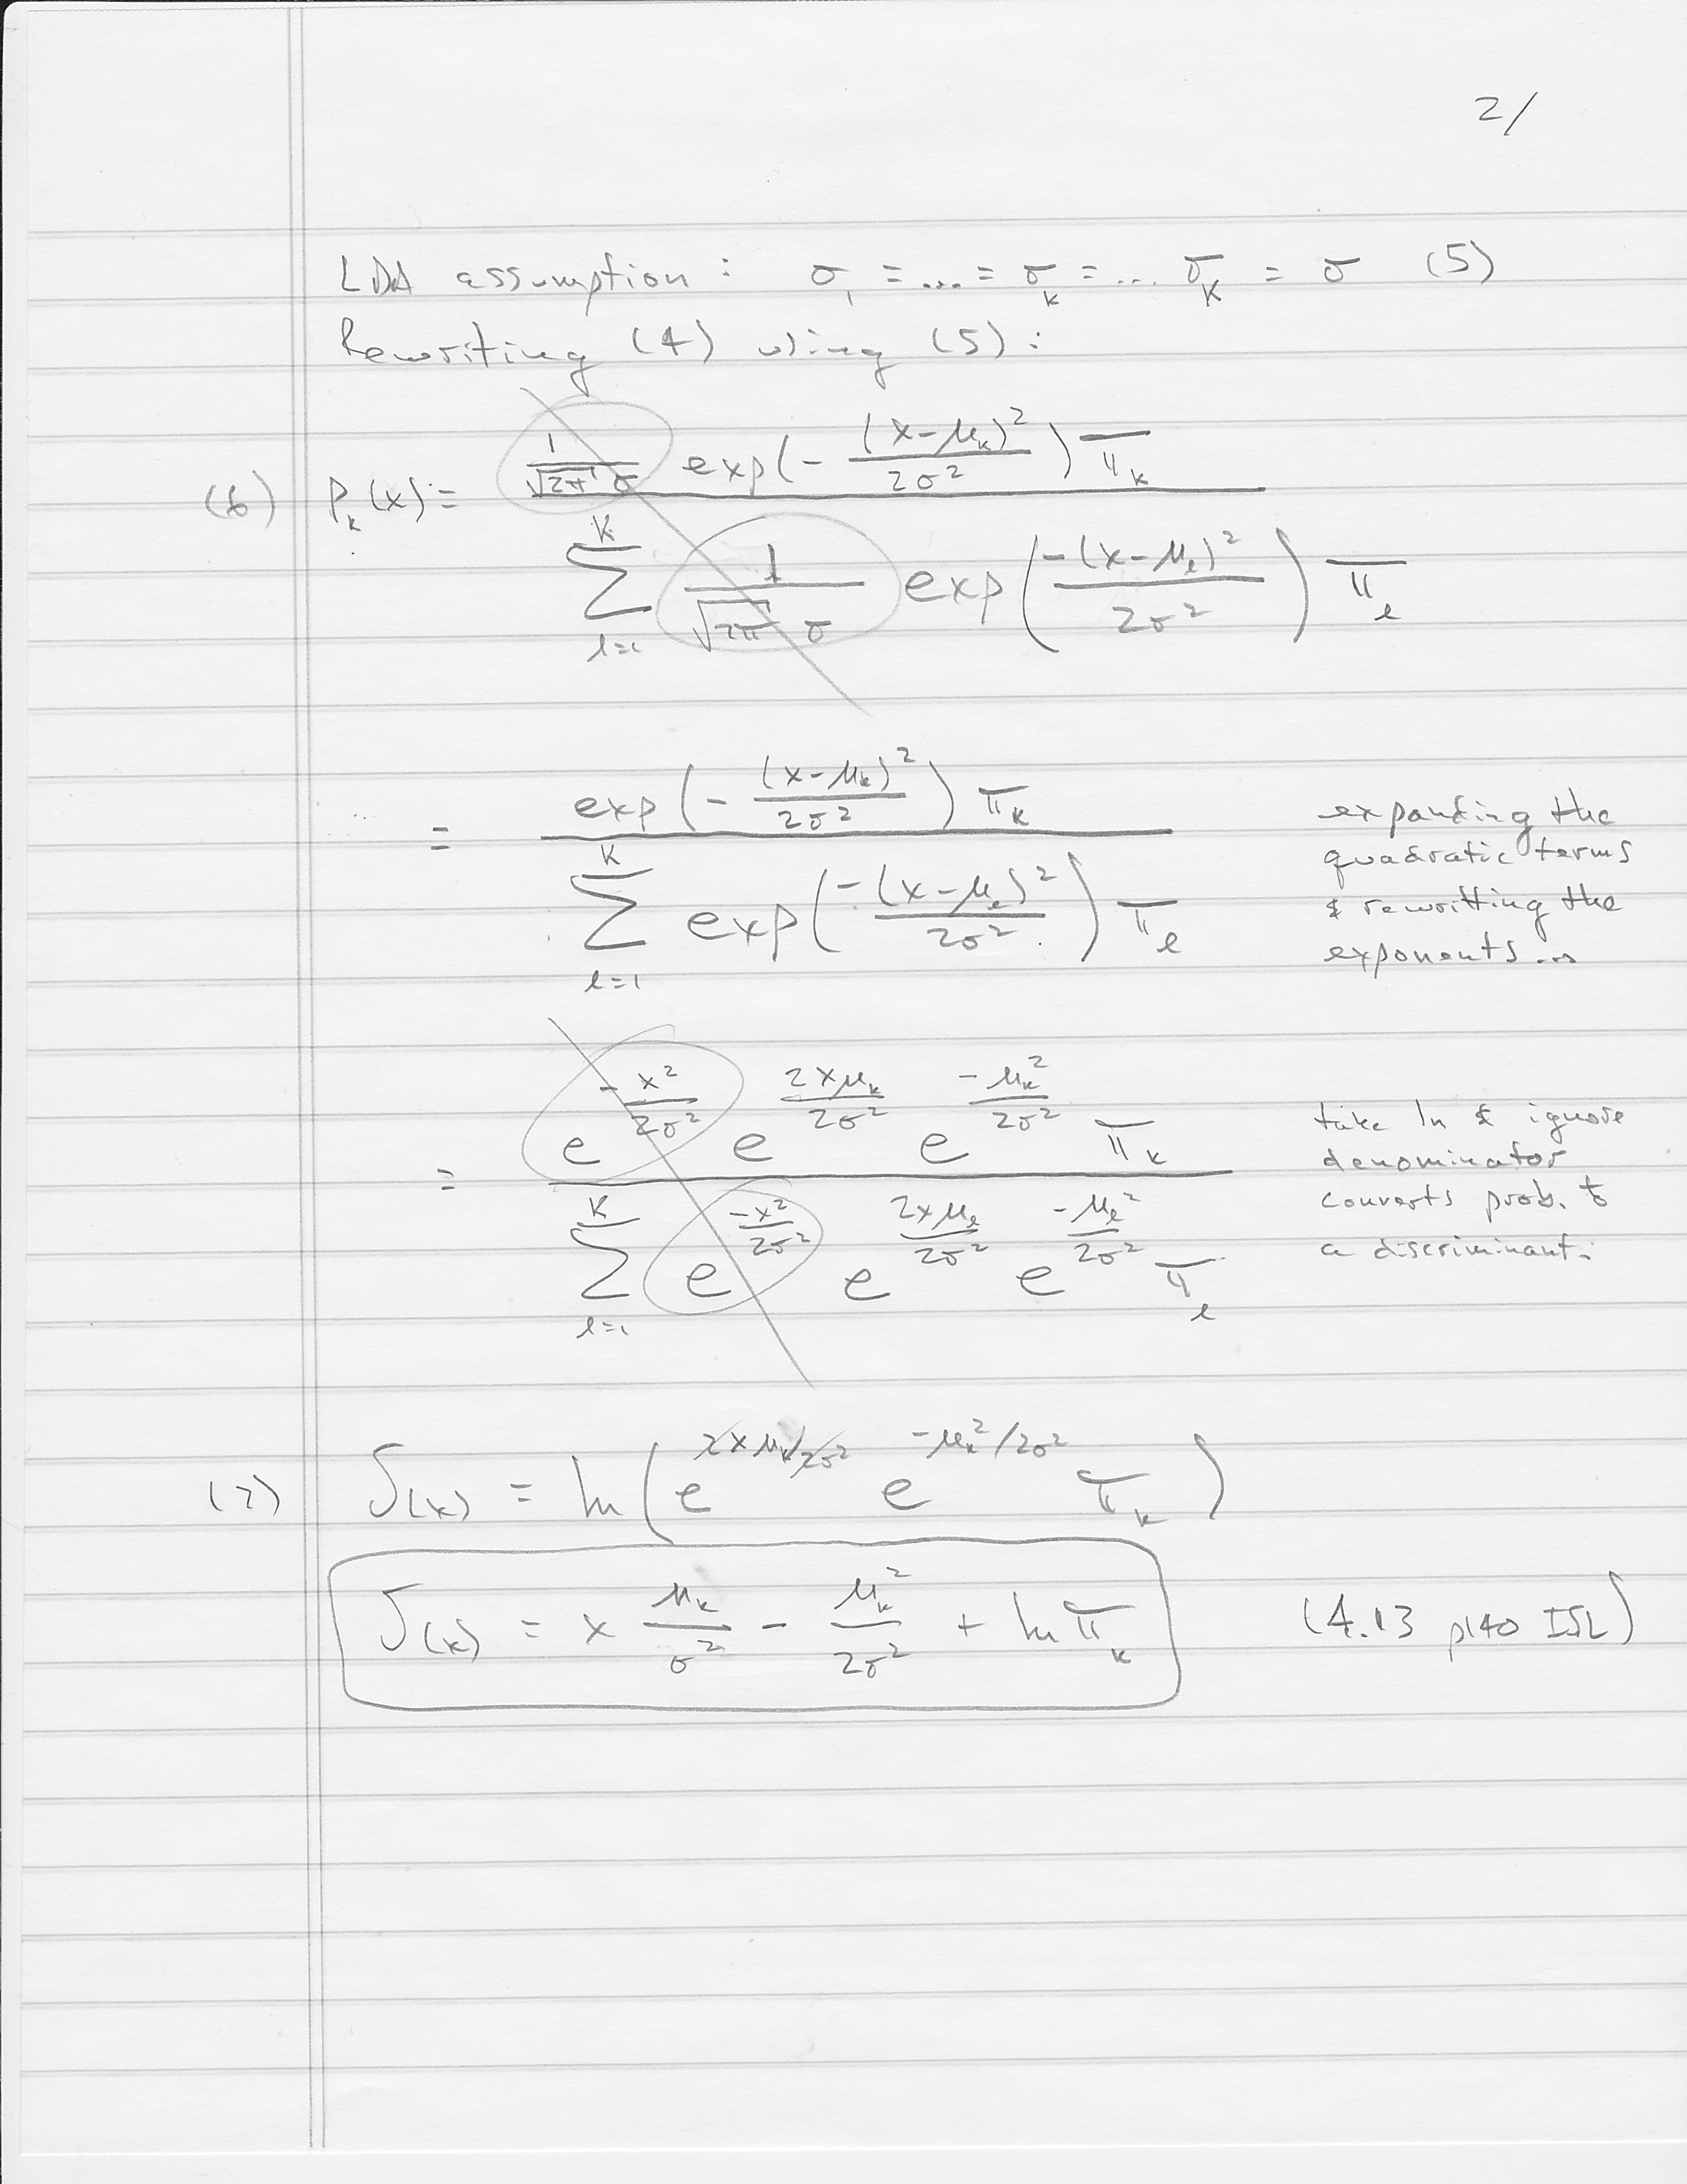 2/
LDA assumption : σ₁ = ... = σ_k = ... σ_K = σ (5)
Rewriting (4) using (5) :
(6) P_k(x) = \frac{\frac{1}{\sqrt{2π} σ} exp(- \frac{(x-μ_k)^2}{2σ^2}) π_k}{\sum_{l=1}^{K} \frac{1}{\sqrt{2π} σ} exp(\frac{-(x-μ_l)^2}{2σ^2}) π_l}
= \frac{exp(- \frac{(x-μ_k)^2}{2σ^2}) π_k}{\sum_{l=1}^{K} exp(\frac{-(x-μ_l)^2}{2σ^2}) π_l}
expanding the
quadratic terms
& rewritting the
exponents...
= \frac{e^{-\frac{x^2}{2σ^2}} e^{\frac{2xμ_k}{2σ^2}} e^{\frac{-μ_k^2}{2σ^2}} π_k}{\sum_{l=1}^{K} e^{\frac{-x^2}{2σ^2}} e^{\frac{2xμ_l}{2σ^2}} e^{\frac{-μ_l^2}{2σ^2}} π_l}
take ln & ignore
denominator
converts prob. to
a discriminant.
(7) δ(x) = ln(e^{2xμ_k/2σ^2} e^{-μ_k^2/2σ^2} π_k)
δ(x) = x \frac{μ_k}{σ^2} - \frac{μ_k^2}{2σ^2} + ln π_k (4.13 p140 ISL)